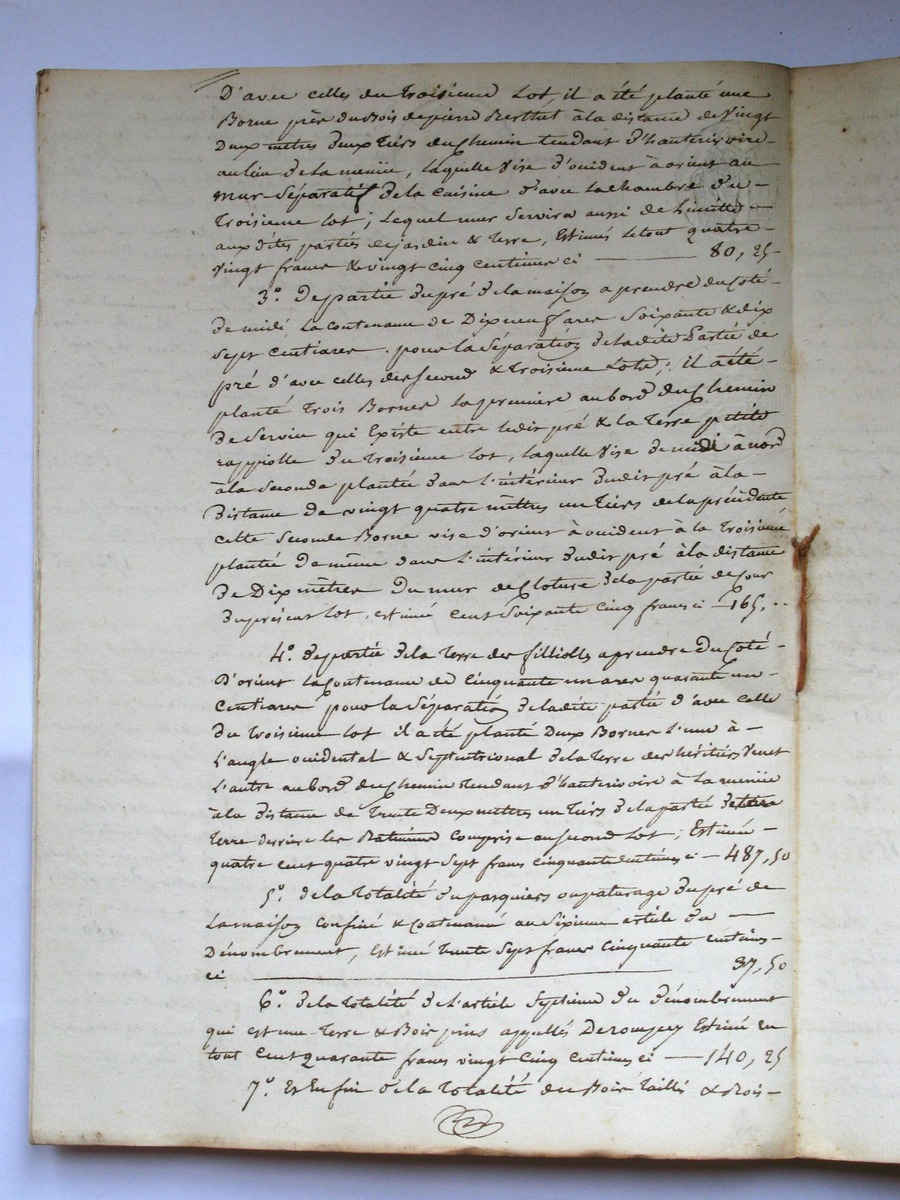 D'avec celles du troisieme Lot, il a été planté une
Borne près du Bois de pierre Berthet à la distance de Vingt
Deux mètres deux Tiers du Chemin tendant d'hauterivoire
au lieu de la meniie, laquelle Vise d'occident à orient au
mur séparatif de la Cuisine d'avec la chambre du
Troisieme lot; lequel mur servira aussi de Limitte
aux dites parties de jardin & Terre, Estimés le tout quatre
vingt francs & vingt cinq centimes ci 80, 25
3.º De partie du pré de la maison a prendre du Coté
De midi La contenance de Dix neuf ares Soixante & dix
sept centiares. pour la séparation de la dite Partie de
pré d'avec celles des second & troisieme Lots; il a été
planté trois Bornes la premiere au bord du Chemin
De Service qui Existe entre ledit pré & la Terre petite
du Troisieme lot, laquelle Vise de midi à nord
à la seconde plantée dans l'intérieur dudit pré à la
Distance de vingt quatre mètres un tiers de la précédente
cette seconde Borne vise d'orient à occident à la Troisieme
plantée de même dans l'intérieur dudit pré à la distance
de Dix mètres du mur de Cloture de la partie de Cour
du présent lot, estimé cent soixante cinq francs ci 165, ..
4.º de partie de la Terre des filliolles a prendre du Coté
D'orient la Contenance de Cinquante un ares quarante un
Centiares pour la séparation de la dite partie d'avec celle
du troisieme lot il a été planté Deux Bornes L'une à
L'angle occidental & Septentrional de la Terre des héritiers Venet
L'autre au bord du Chemin Tendant d'hauterivoire à la meniie
à la distance de Trente Deux mètres un Tiers de la partie de
Terre derriere les Batimens Comprise au second Lot; Estimée
quatre cent quatre vingt sept francs cinquante centimes ci 487, 50
5.º de la totalité du pasquiers ou paturage du pré de
La maison Confiné & Contenancé au Sixieme article du
Dénombrement, Estimé trente sept francs Cinquante centimes
ci 37, 50
6.º de la totalité de L'article Septieme du dénombrement
qui est une Terre & Bois pins appellés Estimé en
tout Cent quarante francs vingt cinq centimes ci 140, 25
7.º Et Enfin de la totalité du Bois Taillis & Bois